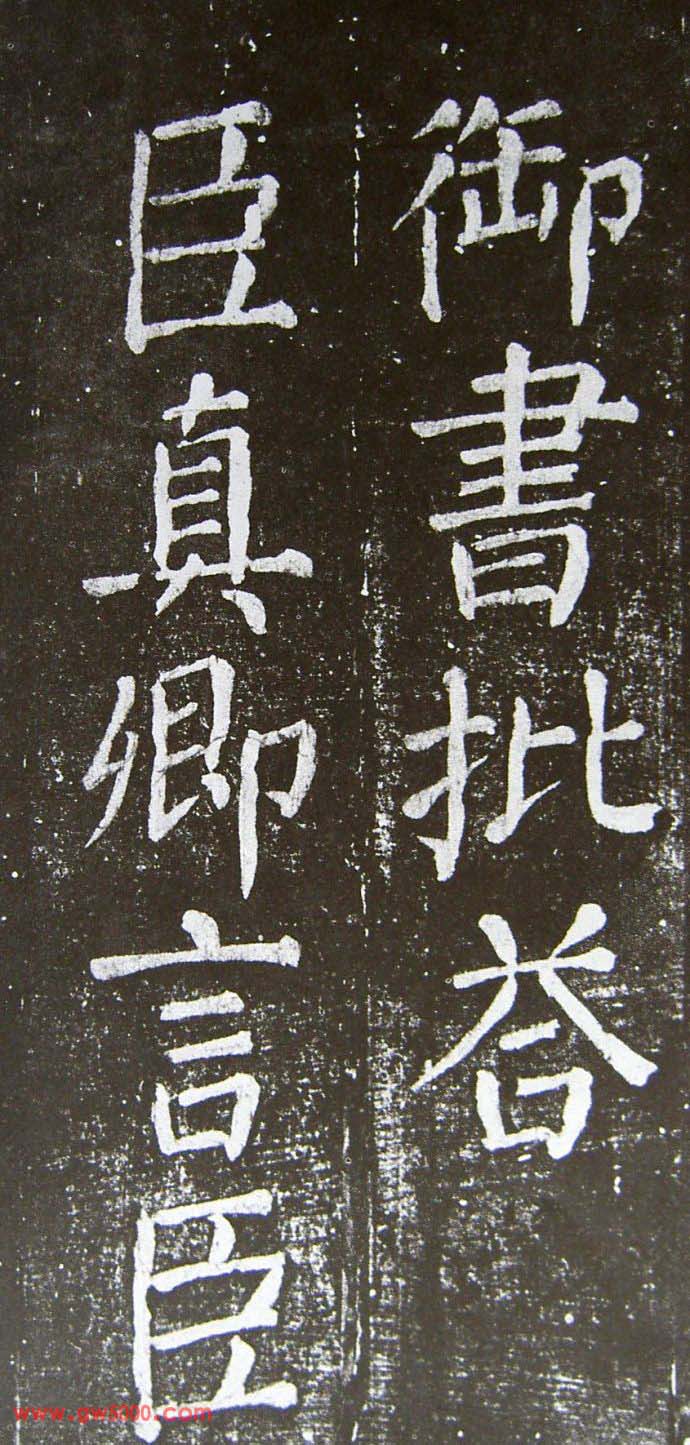 御書批荅
臣真卿言臣
www.gw5000.com